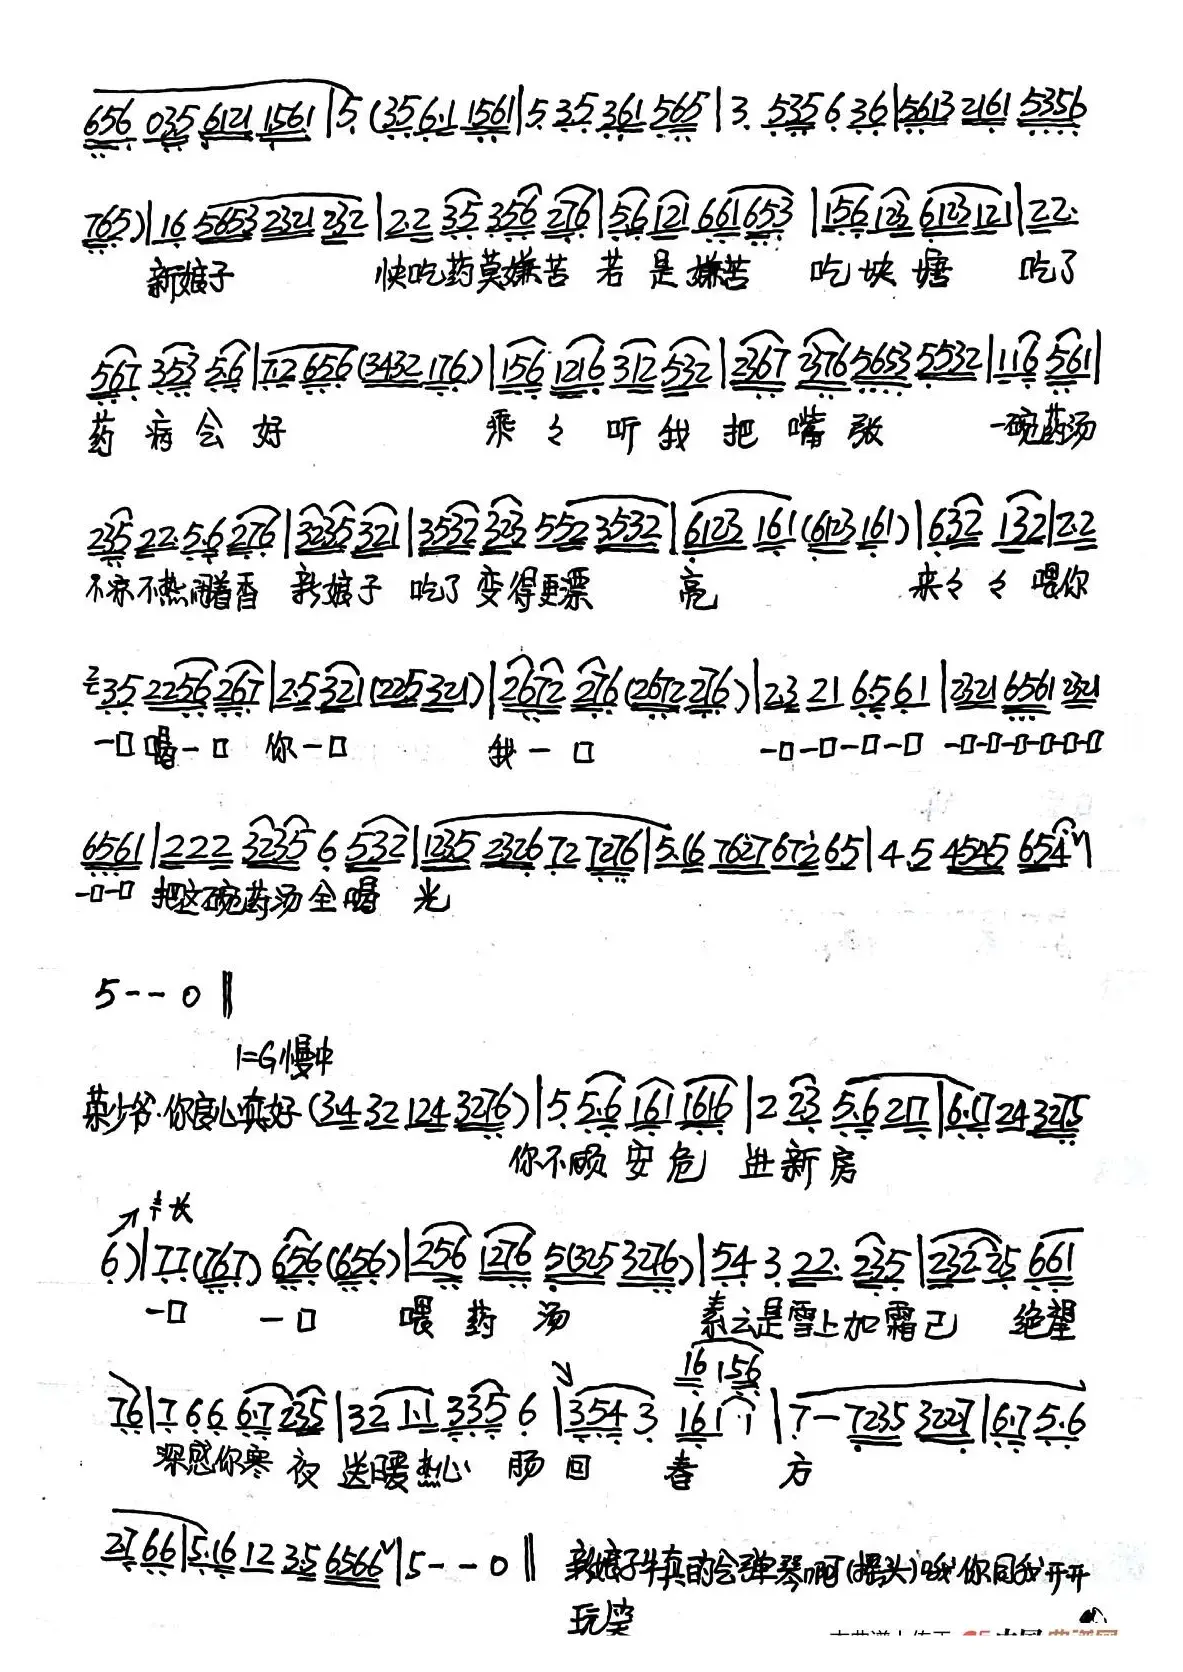 656 035 6121 1561 | 5. (35 6.1 1561 | 5.35 361 565 | 3. 535 6 36 | 5613 2161 5356
765) | 16 5653 2321 232 | 2.2 35 356 276 | 5.6 121 661 653 | 156 123 6123 121 | 22.
新娘子 快吃药莫嫌苦 若是嫌苦 吃块塘 吃了
567 353 5.6 | 7.2 656 (3432 176) | 156 1216 312 532 | 2367 2376 5653 5532 | 116 561 |
药病会好 乘々听我把嘴张 一碗药汤
235 22. 5.6 276 | 3235 321 | 3532 323 552 3532 | 6123 161 (6123 161) | 632 132 | 2.2
不凉不热闻着香 新娘子 吃了变得更漂 亮 来々々喂你
35 2256 267 | 2.5 321 (225 321) | 2672 276 (2672 276) | 2.3 21 6.5 61 | 2321 6561 2321
一口喝一口 你一口 我一口 一口一口一口一口 一口一口一口一口
6561 | 222 3235 6 532 | 1235 2326 72 7276 | 5.16 7627 672 65 | 4.5 4545 654
一口一口 把这碗药汤全喝 光
5 - - 0 ‖
1=G慢中
荣少爷.你良心真好 (34 32 124 3276) | 5 5.6 161 1616 | 2 23 5.6 217 | 6.17 24 3275
你不顾安危 进新房
半长
6) | 77 (767) 656 (656) | 256 1276 5(325 3276) | 54 3 22. 235 | 232 25 661
一口 一口 喂药汤 素云是雪上加霜已 绝望
16 156
76 | 7 66 6.7 235 | 32 1.1 335 6 | 354 3 161 1 | 7 - 7235 3227 | 6.7 5.6
深感你寒夜送暖热心 肠回春方
27 66 | 5.16 12 3.5 6566 | 5 - - 0 ‖ 新娘子 真的会弹琴啊(摇头)哦你同我开开
玩笑